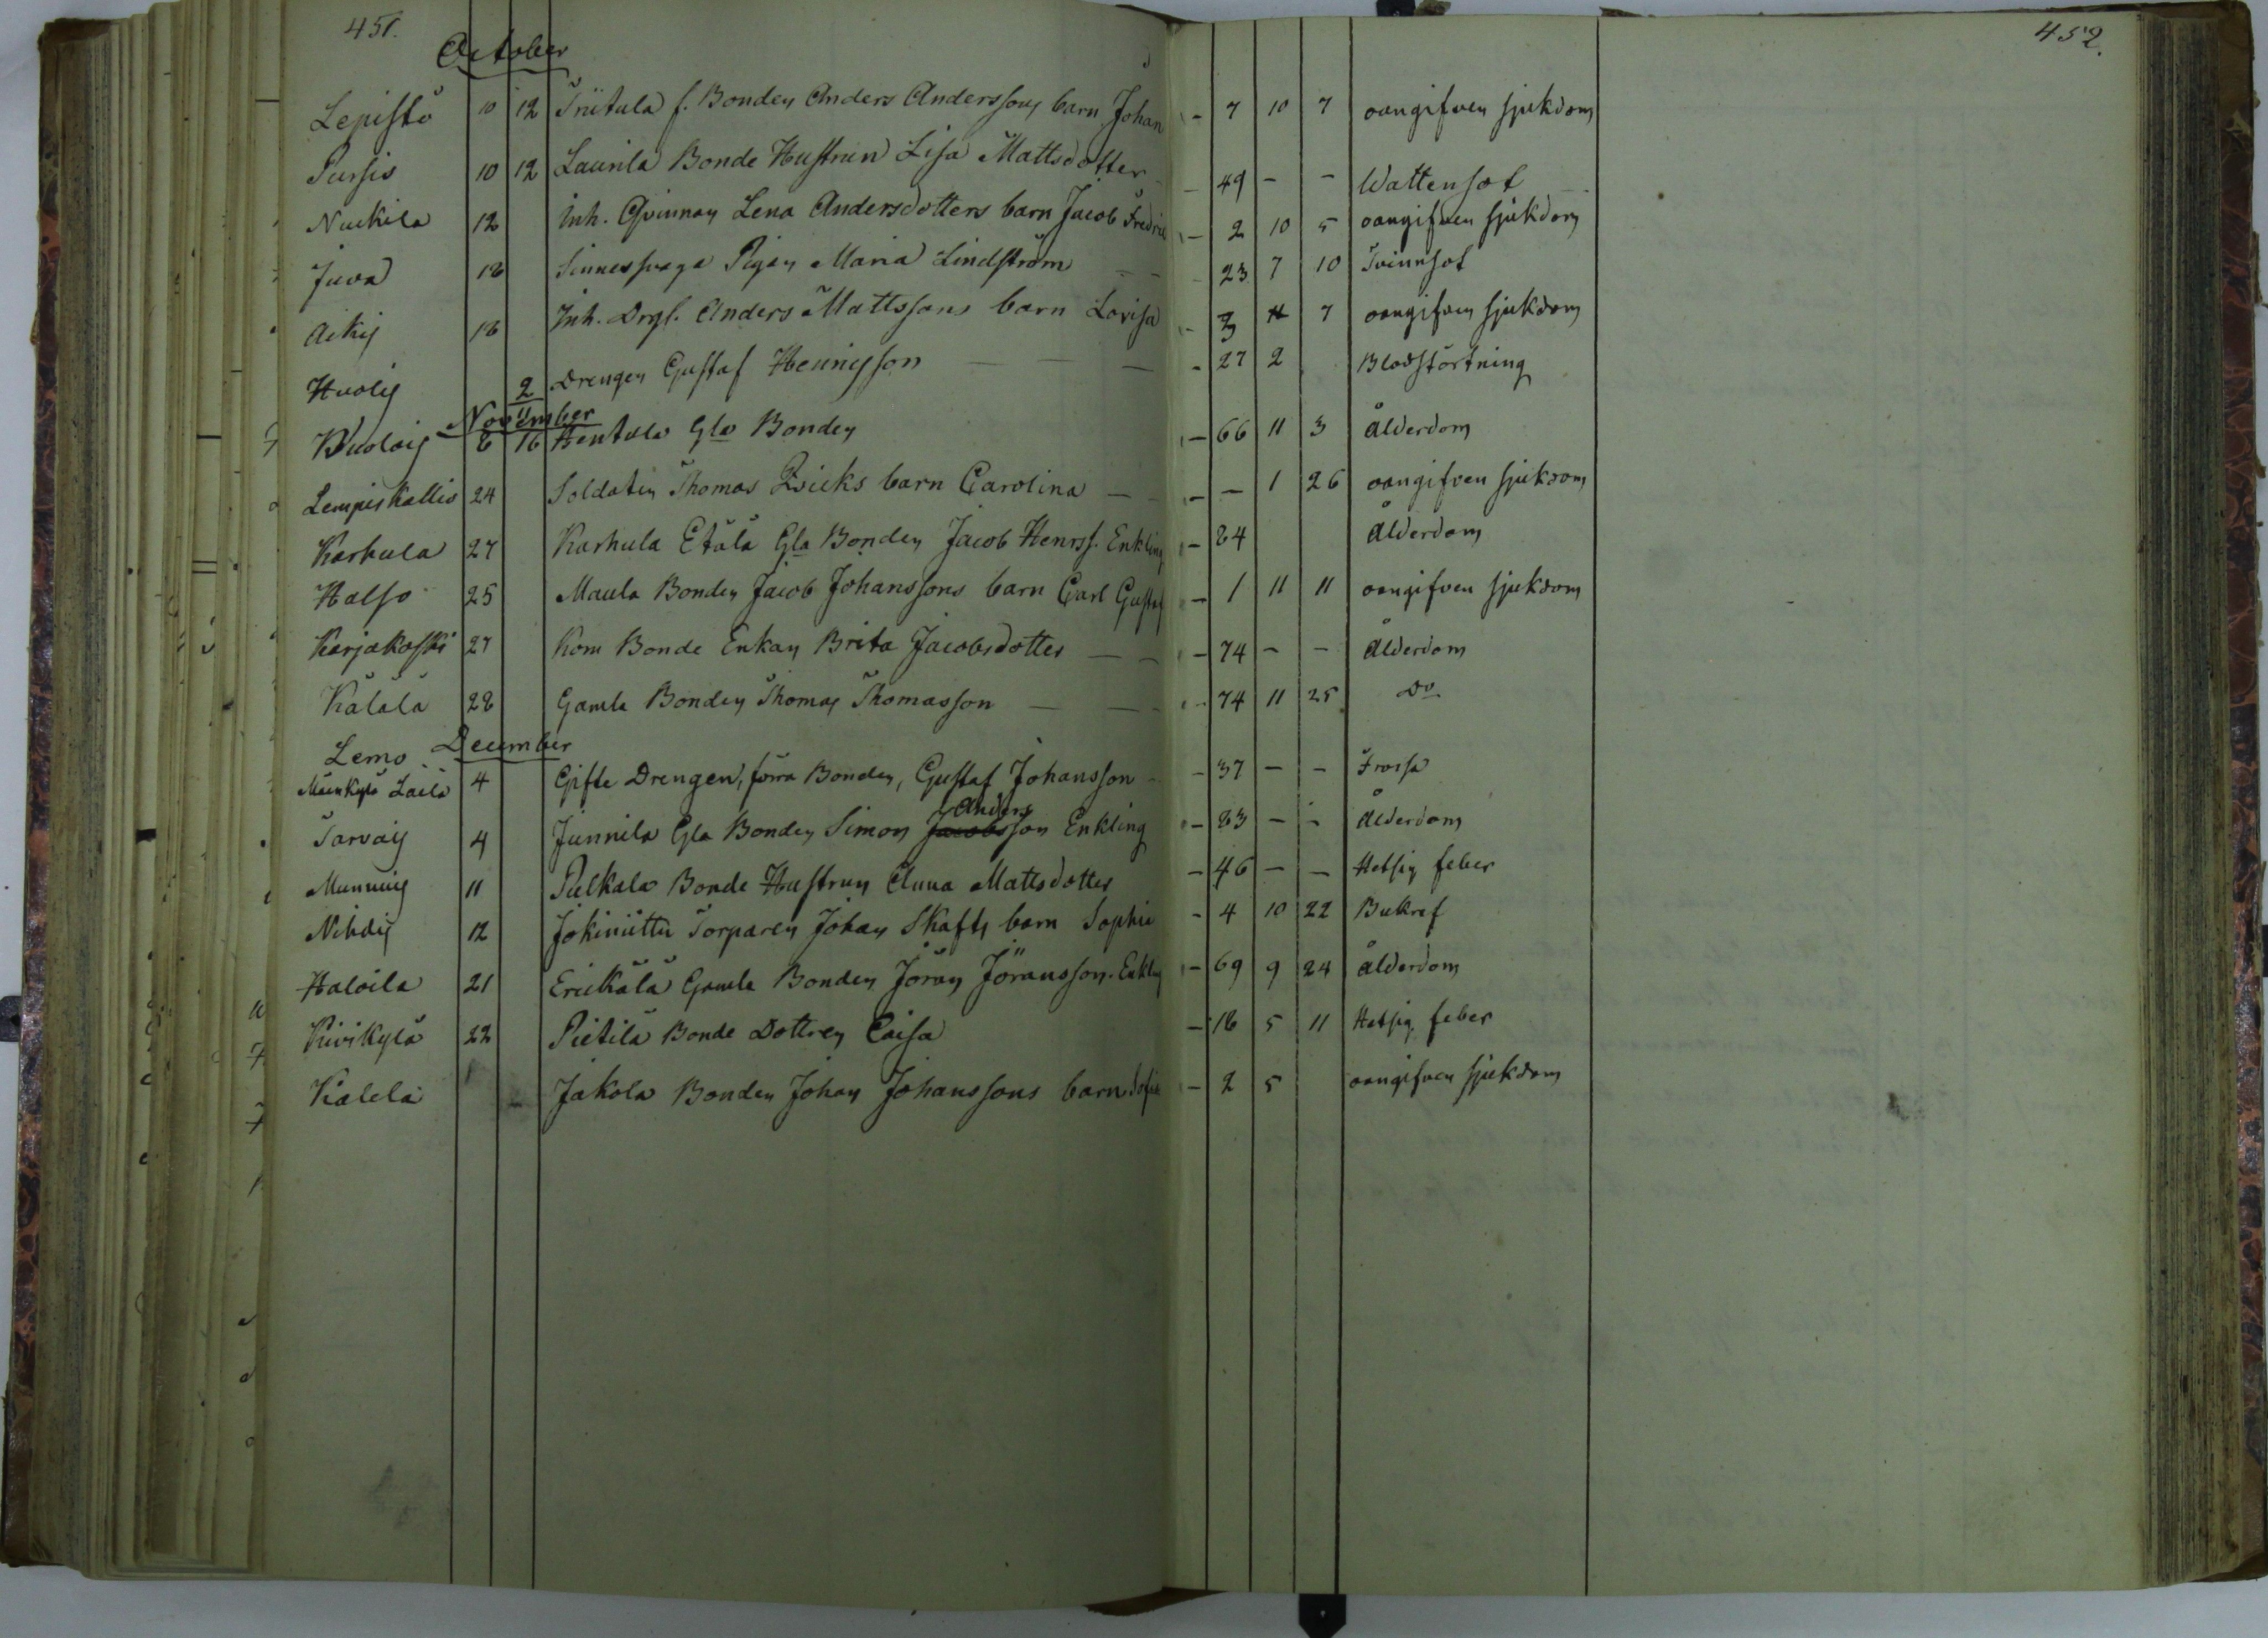 451.
452.
October
Lepistö 10 12 Triitula f. Bonden Anders Anderssons barn Johan - 7 10 7 oangifven sjukdom
Pursis 10 12 Laurila Bonde Hustrun Lisa Mattsdotter - 49 - - Wattensot
Nuckila 12 Inh. Qvinnan Lena Andersdotters barn Jacob Fredric - 2 10 5 oangifven sjukdom
Juva 18 Sinnessvaga Pigan Maria Lindström - - 23 7 10 Tvinnsot
18 Inh. Drgs. Anders Mattssons barn Lovisa - 3 7 oangifven sjukdom
2 Drengen Gustaf Henricsson - - - 27 2 Blodstörtning
November 11
8 16 Hentula Gla Bonden - 66 11 3 Ålderdom
Lempiskallio 24 Soldaten Thomas barn Carolina - - - 1 26 oangifven sjukdom
Karhula 27 Karhula Etälä Gla Bonden Jacob Henrss. Enkling - 84 Ålderdom
Halso 25 Maula Bonden Jacob Johanssons barn Carl Gustaf - 1 11 11 oangifven sjukdom
Karjakoski 27 Kom Bonde Enkan Brita Jacobsdotter - - - 74 - - Ålderdom
Kälälä 28 Gamla Bonden Thomas Thomasson - - - 74 11 25 Do.
December
Lemo
Mäenkylä Laila 4 Gifte Drengen, förra Bonden, Gustaf Johansson - - 37 - - Frossa
Anders
Tarvais 4 Junnila Gla Bonden Simon Jacobsson Enkling - 83 - - Ålderdom
11 Pelkala Bonde Hustrun Anna Mattsdotter - 46 - - Hetsig feber
12 Jokiniittu Torparen Johan Skafts barn Sophia - 4 10 22 Bukref
Haloila 21 Erickälä Gamla Bonden Jöran Göransson. Enkling - 69 9 24 Ålderdom
Kivikylä 22 Pietilä Bonde Dottren Caisa - 18 5 11 Hetsig feber
Kälelä Jakola Bonden Johan Johanssons barn Sofia - 2 5 oangifven sjukdom